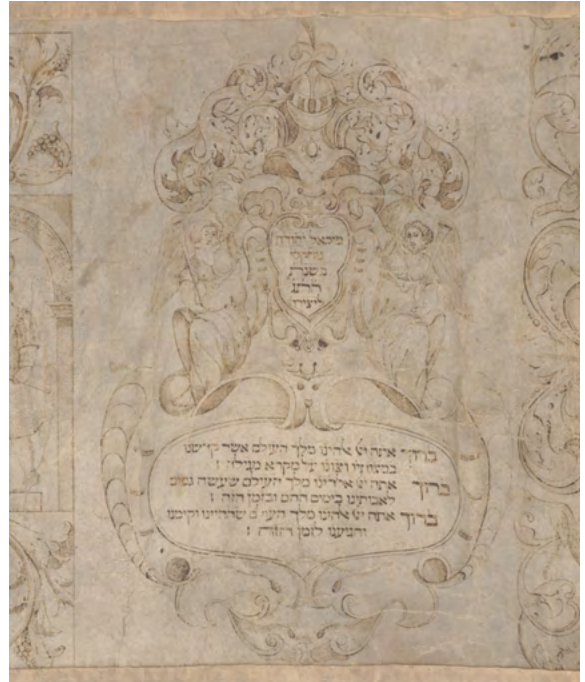 מיכאל יהודה
משנת
לעיר
ברוך אתה יי אלהינו מלך העולם אשר קדשנו
במצותיו וצונו על מקרא מגילה :
ברוך אתה יי אלהינו מלך העולם שעשה נסים
לאבותינו בימים ההם ובזמן הזה :
ברוך אתה יי אלהינו מלך העולם שהחיינו וקיימנו
והגיענו לזמן הזה :